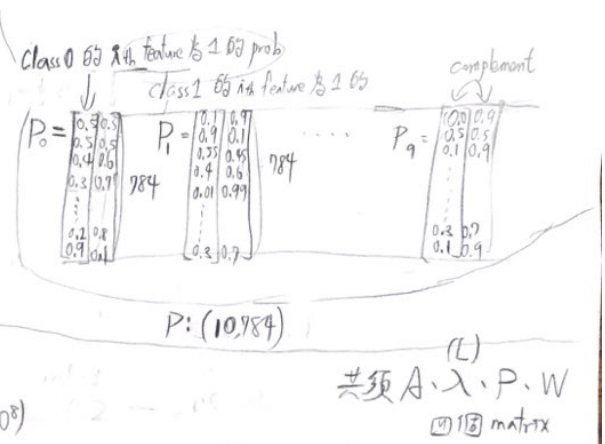 class 0 的 ith feature 為 1 的 prob
class 1 的 ith feature 為 1 的
complement
P₀ = 0.5 0.5
0.5 0.5
0.4 0.6
0.3 0.7
0.2 0.8
0.9 0.1
784
P₁ = 0.1 0.9
0.9 0.1
0.55 0.45
0.4 0.6
0.01 0.99
0.3 0.7
784
....
P₉ =
0.5 0.5
0.1 0.9
0.3 0.7
0.1 0.9
P: (10,784)
(L)
共須 A、λ、P、W
四個 matrix
0⁸)